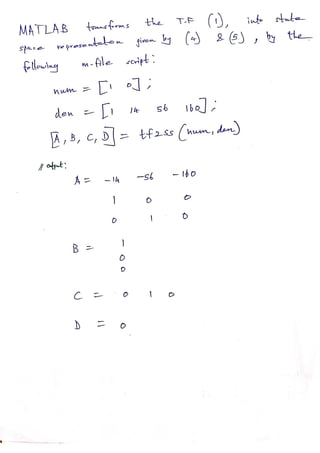 MATLAB transforms the T.F (1), into state
space representation given by (4) & (5), by the
following m-file script:
num = [1 0];
den = [1 14 56 160];
[A, B, C, D] = tf2ss (num, den)
// output:
A = -14 -56 -160
1 0 0
0 1 0
B = 1
0
0
C = 0 1 0
D = 0